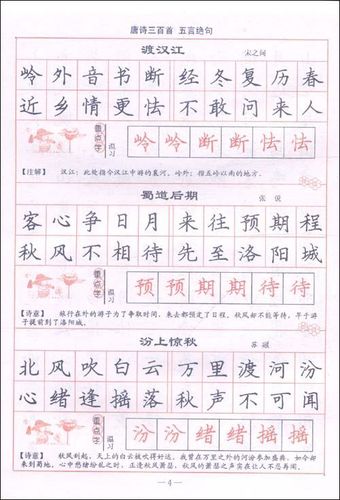 唐诗三百首 五言绝句
渡汉江
宋之问
岭外音书断经冬复历春
近乡情更怯不敢问来人
重点字
温习
岭岭断断怯怯
【注解】 汉江：此处指介汉江中游的襄河。岭外：指五岭以南的地方。
蜀道后期
张 说
客心争日月来往预期程
秋风不相待先至洛阳城
重点字
温习
预预期期待待
【诗意】 旅行在外的游子为了争取时间，来去都预定了日程。秋风却不能等待，早于游
子提前到了洛阳城。
汾上惊秋
苏 颋
北风吹白云万里渡河汾
心绪逢摇落秋声不可闻
重点字
温习
汾汾绪绪摇摇
【诗意】 秋风刮起，天上的白云被吹得好远。我曾在万里之外的河汾参加盛典，如今却
来到蜀地，心中愁绪纷乱之时，正逢秋风萧瑟。秋风的萧瑟之声实在让人不忍再闻。
— 4 —